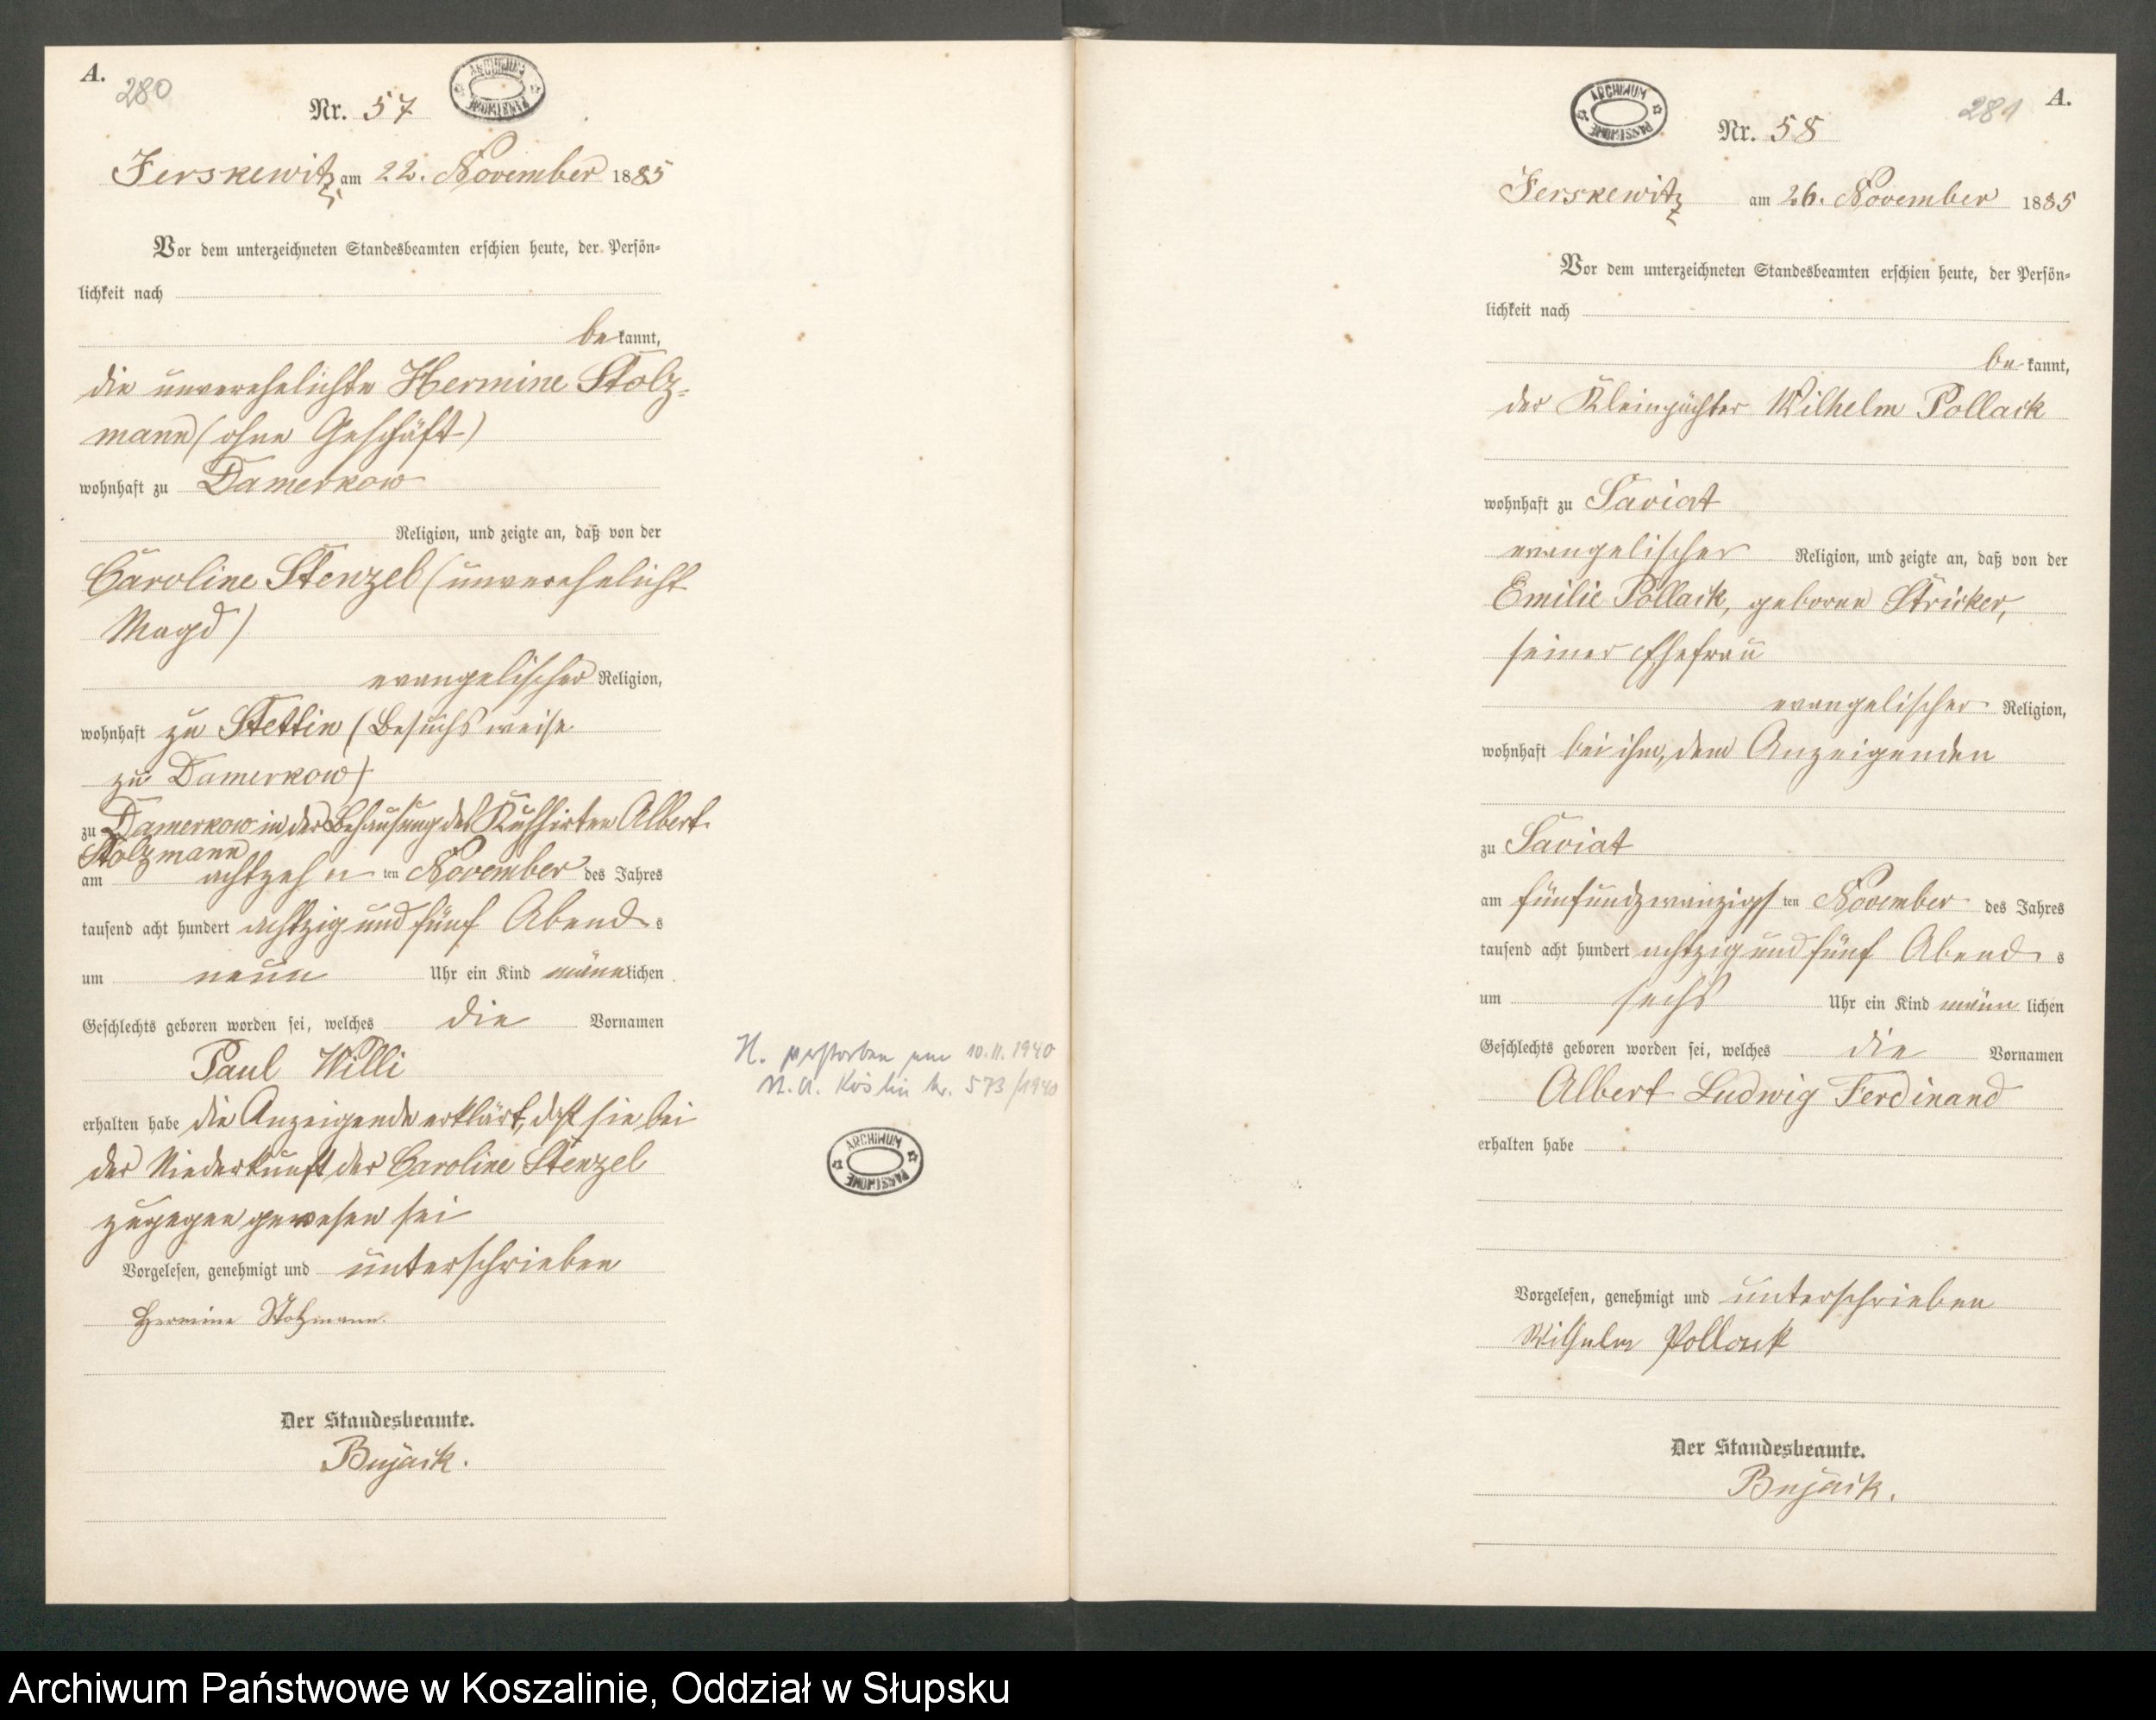 A.
280
Nr. 57
ARCHIWUM PAŃSTWOWE
Jerskewitz, am 22. November 1885
Vor dem unterzeichneten Standesbeamten erschien heute, der Persön-
lichkeit nach
be kannt,
die unverehelichte Hermine Stolz-
mann (ohne Geschäft)
wohnhaft zu Damerkow
Religion, und zeigte an, daß von der
Caroline Stenzel (unverehelicht
Magd)
evangelischer Religion,
wohnhaft zu Stettin (Besuchsweise
zu Damerkow)
zu Damerkow in der Behausung des Kuhhirten Albert
Stolzmann
am achtzehn ten November des Jahres
tausend acht hundert achtzig und fünf Abend s
um neun Uhr ein Kind männlichen
Geschlechts geboren worden sei, welches die Vornamen
Paul Willi
erhalten habe die Anzeigende erklärt, daß sie bei
der Niederkunft der Caroline Stenzel
zugegen gewesen sei
Vorgelesen, genehmigt und unterschrieben
Hermine Stolzmann.
Der Standesbeamte.
Bujack.
verstorben am 10.11.1940
Köslin Nr. 573/1940
ARCHIWUM PAŃSTWOWE
ARCHIWUM PAŃSTWOWE
281 A.
Nr. 58
Jerskewitz am 26. November 1885
Vor dem unterzeichneten Standesbeamten erschien heute, der Persön-
lichkeit nach
be kannt,
der Kleinpächter Wilhelm Pollack
wohnhaft zu Saviat
evangelischer Religion, und zeigte an, daß von der
Emilie Pollack, geborne Stricker,
seiner Ehefrau
evangelischer Religion,
wohnhaft bei ihm, dem Anzeigenden
zu Saviat
am fünfundzwanzigs ten November des Jahres
tausend acht hundert achtzig und fünf Abend s
um sechs Uhr ein Kind männ lichen
Geschlechts geboren worden sei, welches die Vornamen
Albert Ludwig Ferdinand
erhalten habe
Vorgelesen, genehmigt und unterschrieben
Wilhelm Pollack
Der Standesbeamte.
Bujack.
Archiwum Państwowe w Koszalinie, Oddział w Słupsku